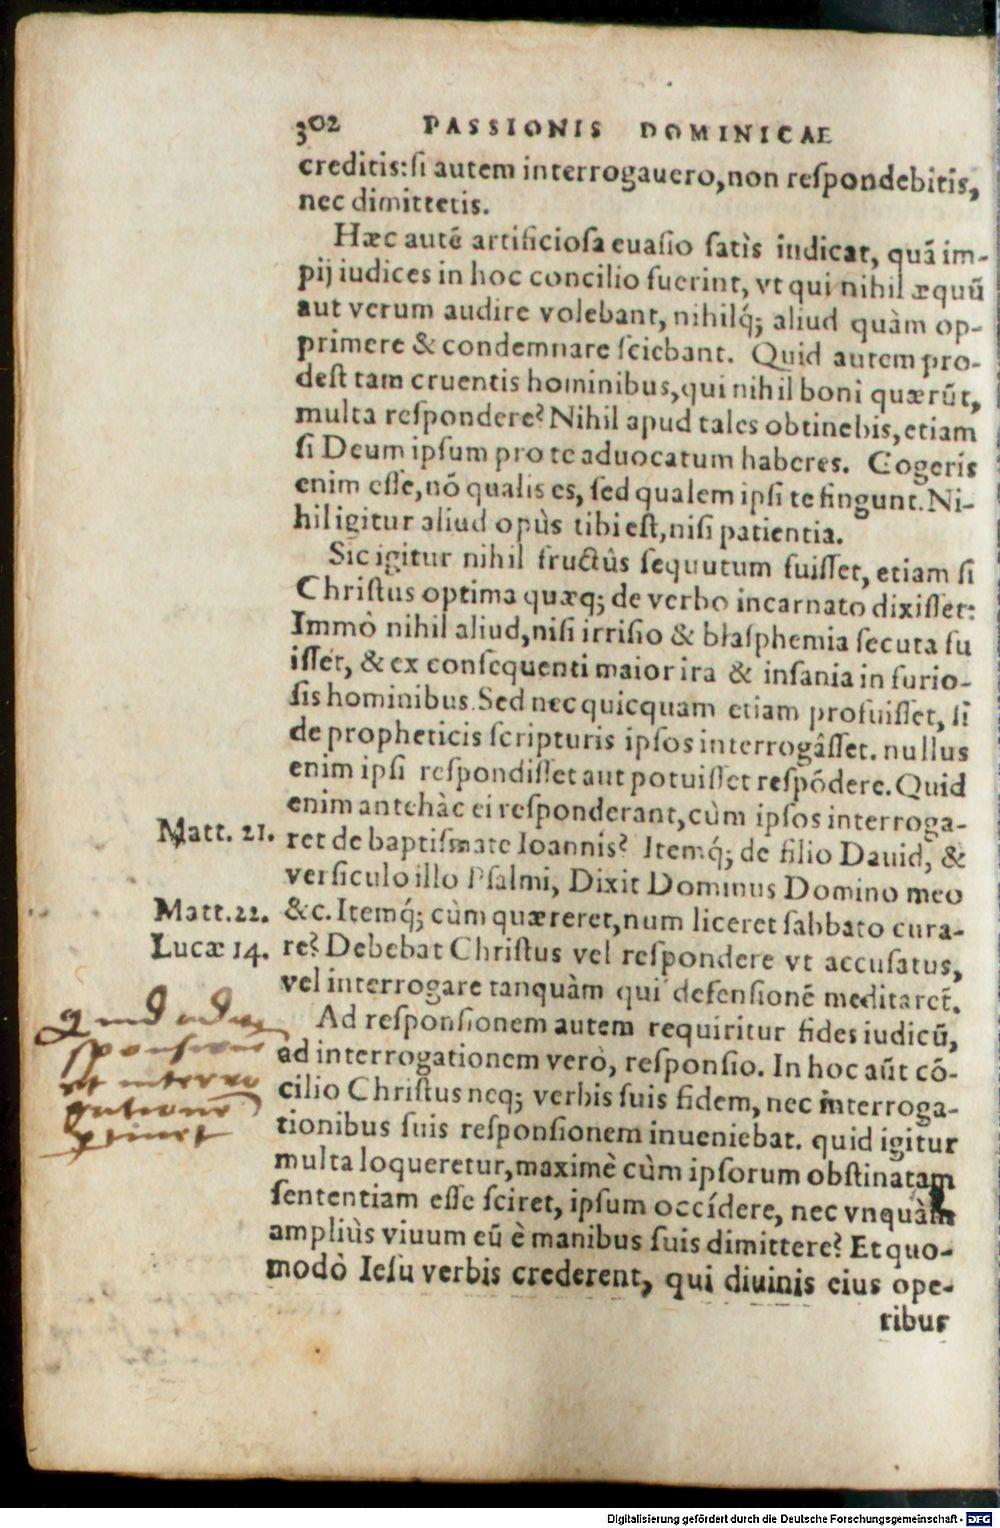 302 PASSIONIS DOMINICAE
creditis: si autem interrogauero, non respondebitis,
nec dimittetis.
Hæc autē artificiosa euasio satìs indicat, quā im-
pij iudices in hoc concilio fuerint, vt qui nihil æquū
aut verum audire volebant, nihilq́; aliud quàm op-
primere & condemnare sciebant. Quid autem pro-
dest tam cruentis hominibus, qui nihil boni quærūt,
multa respondere? Nihil apud tales obtinebis, etiam
si Deum ipsum pro te aduocatum haberes. Cogeris
enim esse, nō qualis es, sed qualem ipsi te fingunt. Ni-
hil igitur aliud opùs tibi est, nisi patientia.
Sic igitur nihil fructûs sequutum fuisset, etiam si
Christus optima quæq; de verbo incarnato dixisset:
Immò nihil aliud, nisi irrisio & blasphemia secuta fu
isset, & ex consequenti maior ira & insania in furio-
sis hominibus. Sed nec quicquam etiam profuisset, si
de propheticis scripturis ipsos interrogâsset. nullus
enim ipsi respondisset aut potuisset respōdere. Quid
enim antehàc ei responderant, cùm ipsos interroga-
Matt. 21. ret de baptismate Ioannis? Itemq́; de filio Dauid, &
versiculo illo Psalmi, Dixit Dominus Domino meo
Matt. 22. &c. Itemq́; cùm quæreret, num liceret sabbato cura-
Lucæ 14. re? Debebat Christus vel respondere vt accusatus,
vel interrogare tanquàm qui defensionē meditaret̃.
Ad responsionem autem requiritur fides iudicū,
ad interrogationem verò, responsio. In hoc aūt cō-
cilio Christus neq; verbis suis fidem, nec interroga-
tionibus suis responsionem inueniebat. quid igitur
multa loqueretur, maximè cùm ipsorum obstinatam
sententiam esse sciret, ipsum occídere, nec vnquàm
ampliùs viuum eū è manibus suis dimittere? Et quo-
modò Iesu verbis crederent, qui diuinis eius ope-
ribus
quid ad re
sponsionē
et interro
gationē
ꝑtinet
Digitalisierung gefördert durch die Deutsche Forschungsgemeinschaft - DFG